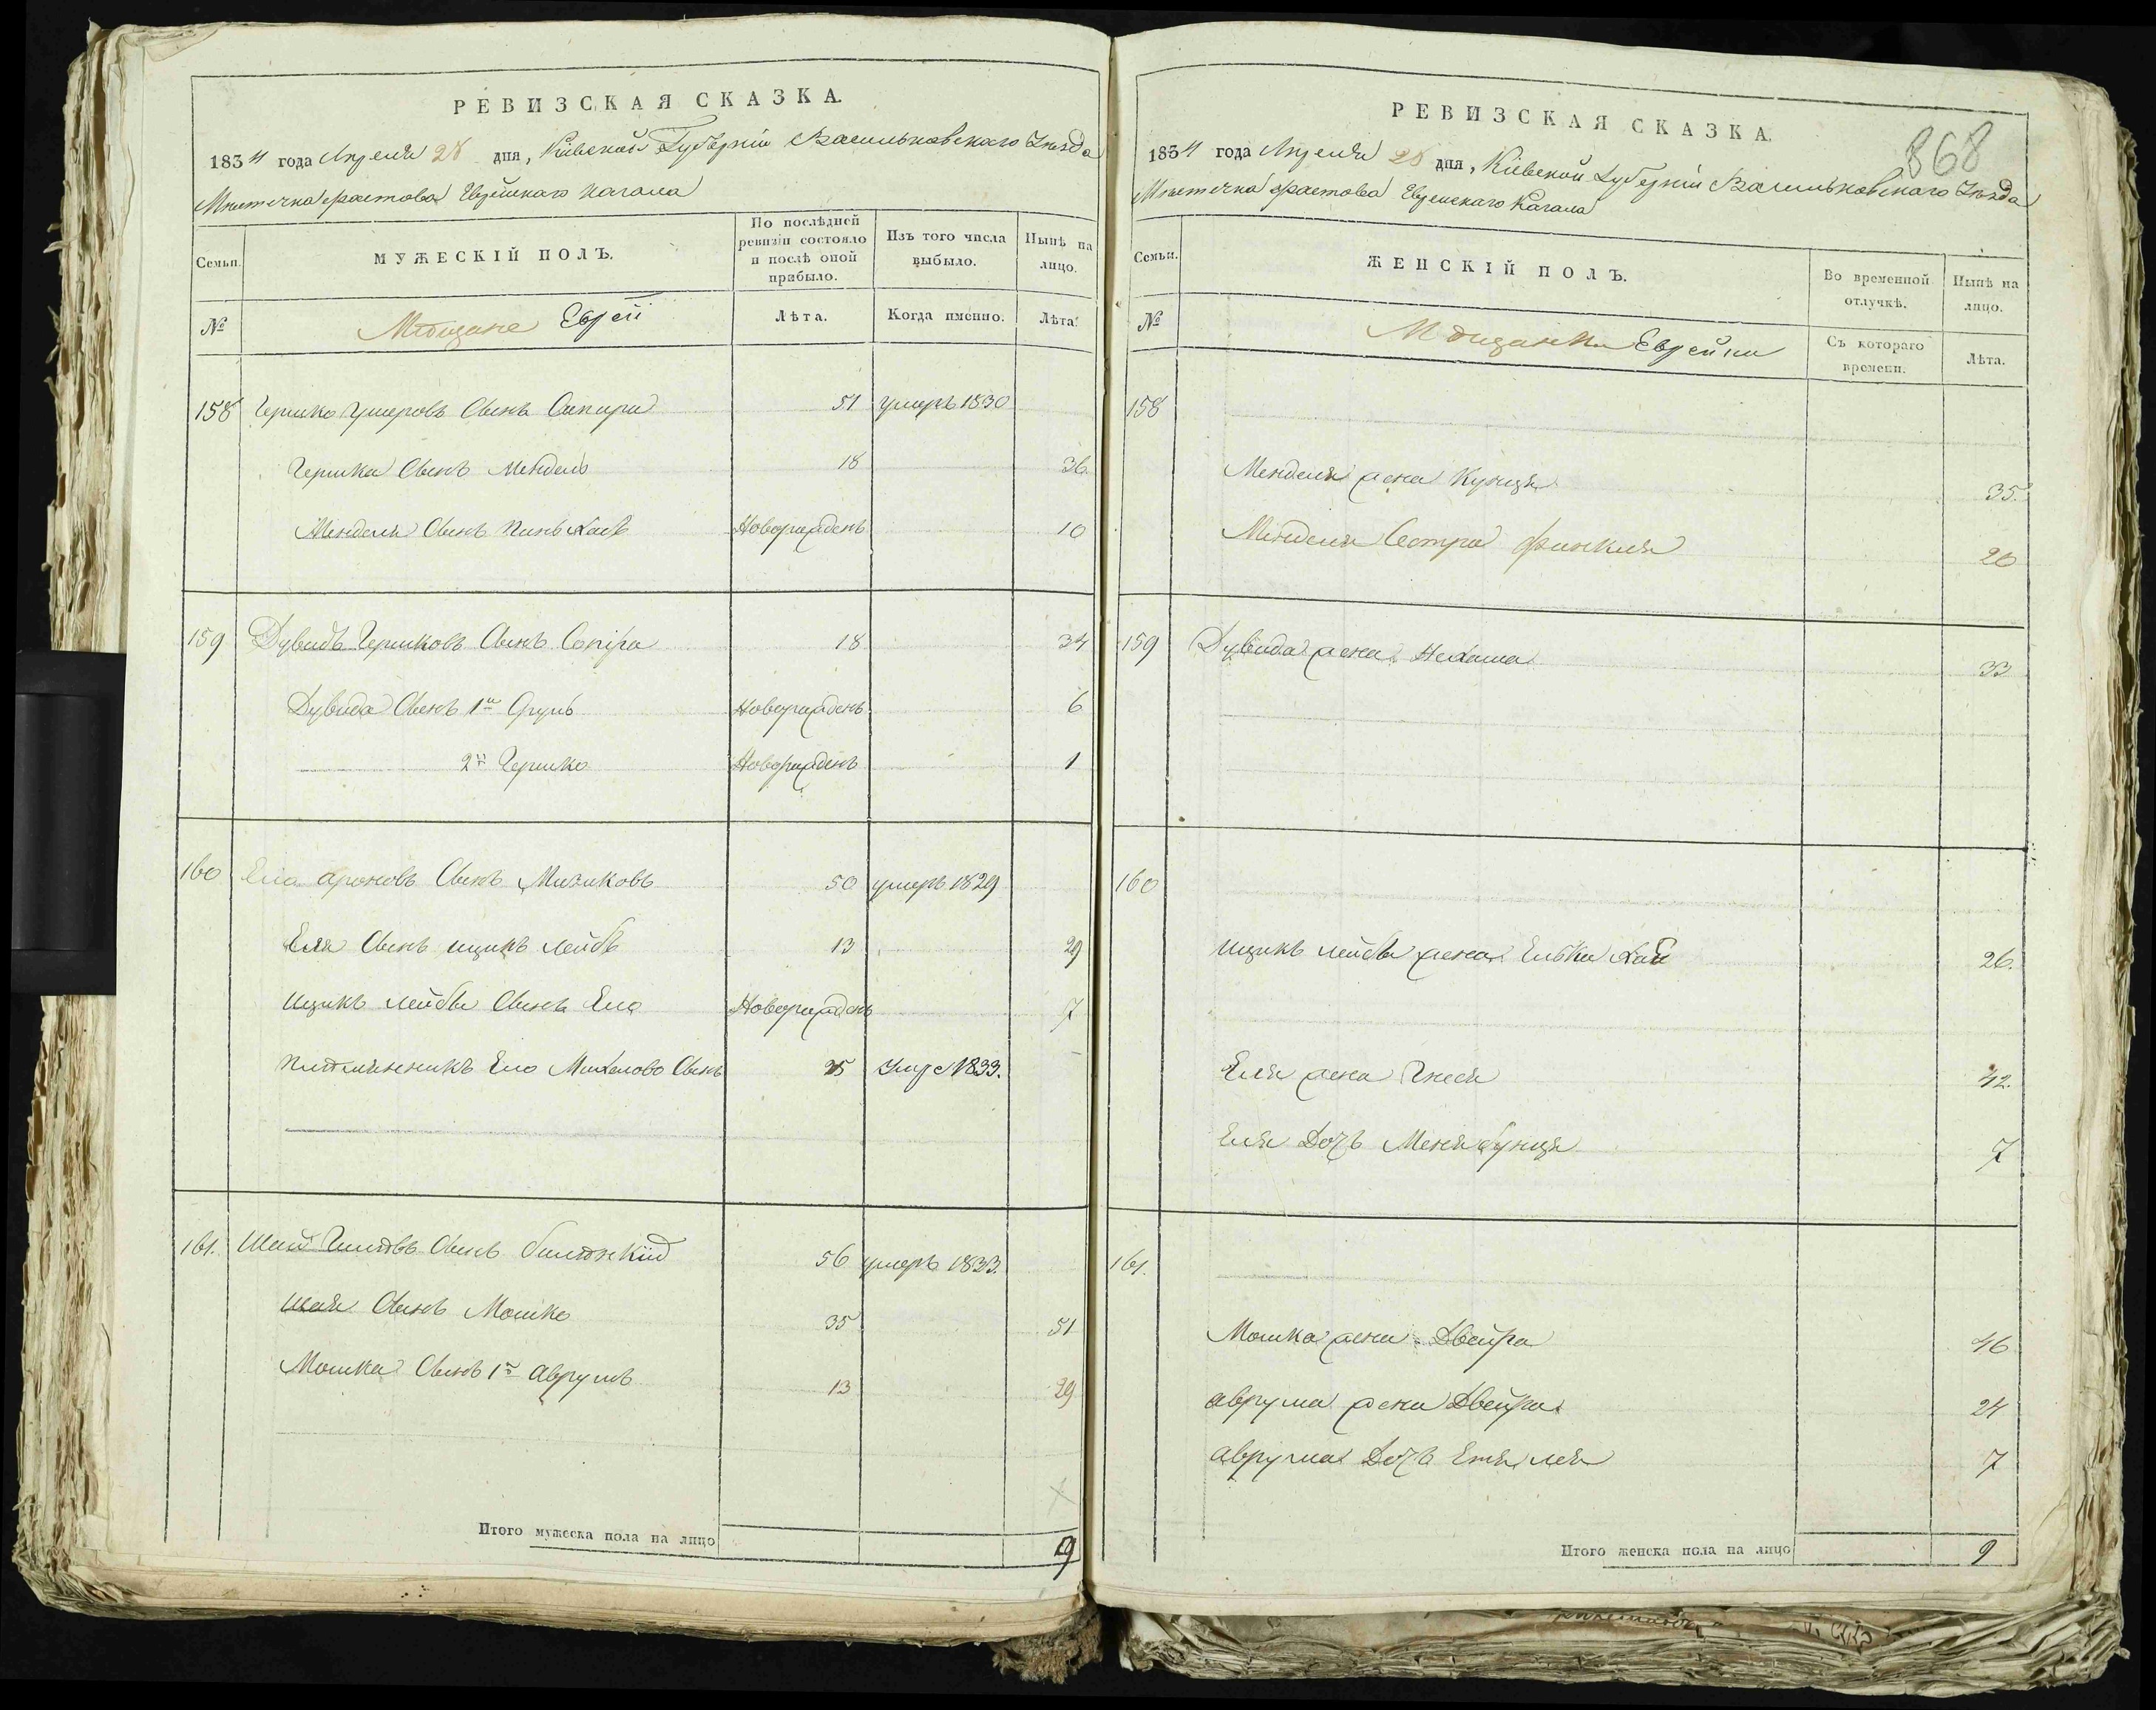 РЕВИЗСКАЯ СКАЗКА.
1834 года Апреля 28 дня, Кіевской Губерніи Васильковскаго Уезда
Местечка Фастова Еврейскаго Кагала
Семьи.
МУЖЕСКІЙ ПОЛЪ.
По послѣдней ревизіи состояло и послѣ оной прибыло.
Изъ того числа выбыло.
Нынѣ на лицо.
№
Мещане Евреи
Лѣта.
Когда именно.
Лѣта.
158 Гершко Умеровъ Сынъ Сапира 51 умеръ 1830
Гершка Сынъ Мендель 18 36
Менделя Сынъ Пинькасъ Новорожденъ 10
159 Дувидъ Гершковъ Сынъ Сапира 18 34
Дувида Сынъ 1й Сруль Новорожденъ 6
2й Гершко Новорожденъ 1
160 Ела Ароновъ Сынъ Мизиковъ 50 умеръ 1829
Еля Сынъ Ицикъ Лейбъ 13 29
Ицикъ Лейбы Сынъ Ело Новорожденъ 7
Племянникъ Ело Михелово Сынъ 25 Умре 1833.
161. Сынъ 56 умеръ 1833.
Шая Сынъ Мошко 35 51
Мошка Сынъ 1й Аврумъ 13 29
Итого мужеска пола на лицо 9
РЕВИЗСКАЯ СКАЗКА.
868
1834 года Апреля 28 дня, Кіевской Губерніи Васильковскаго Уезда
Местечка Фастова Еврейскаго Кагала
Семьи.
ЖЕНСКІЙ ПОЛЪ.
Во временной отлучкѣ.
Нынѣ на лицо.
№
Мещанки Еврейки
Съ котораго времени.
Лѣта.
158
Менделя жена Куница 35.
Менделя Сестра Финкля 20
159 Дувида жена Нехама 33
160
Ицикъ Лейбы жена Елька Хая 26.
Еля жена Гнеся 42.
Еля Дочь Меня Буница 7
161.
Мошка жена Двейра 46
Аврума жена Двейра 24
Аврума Дочь Етя Лея 7
Итого женска пола на лицо 9